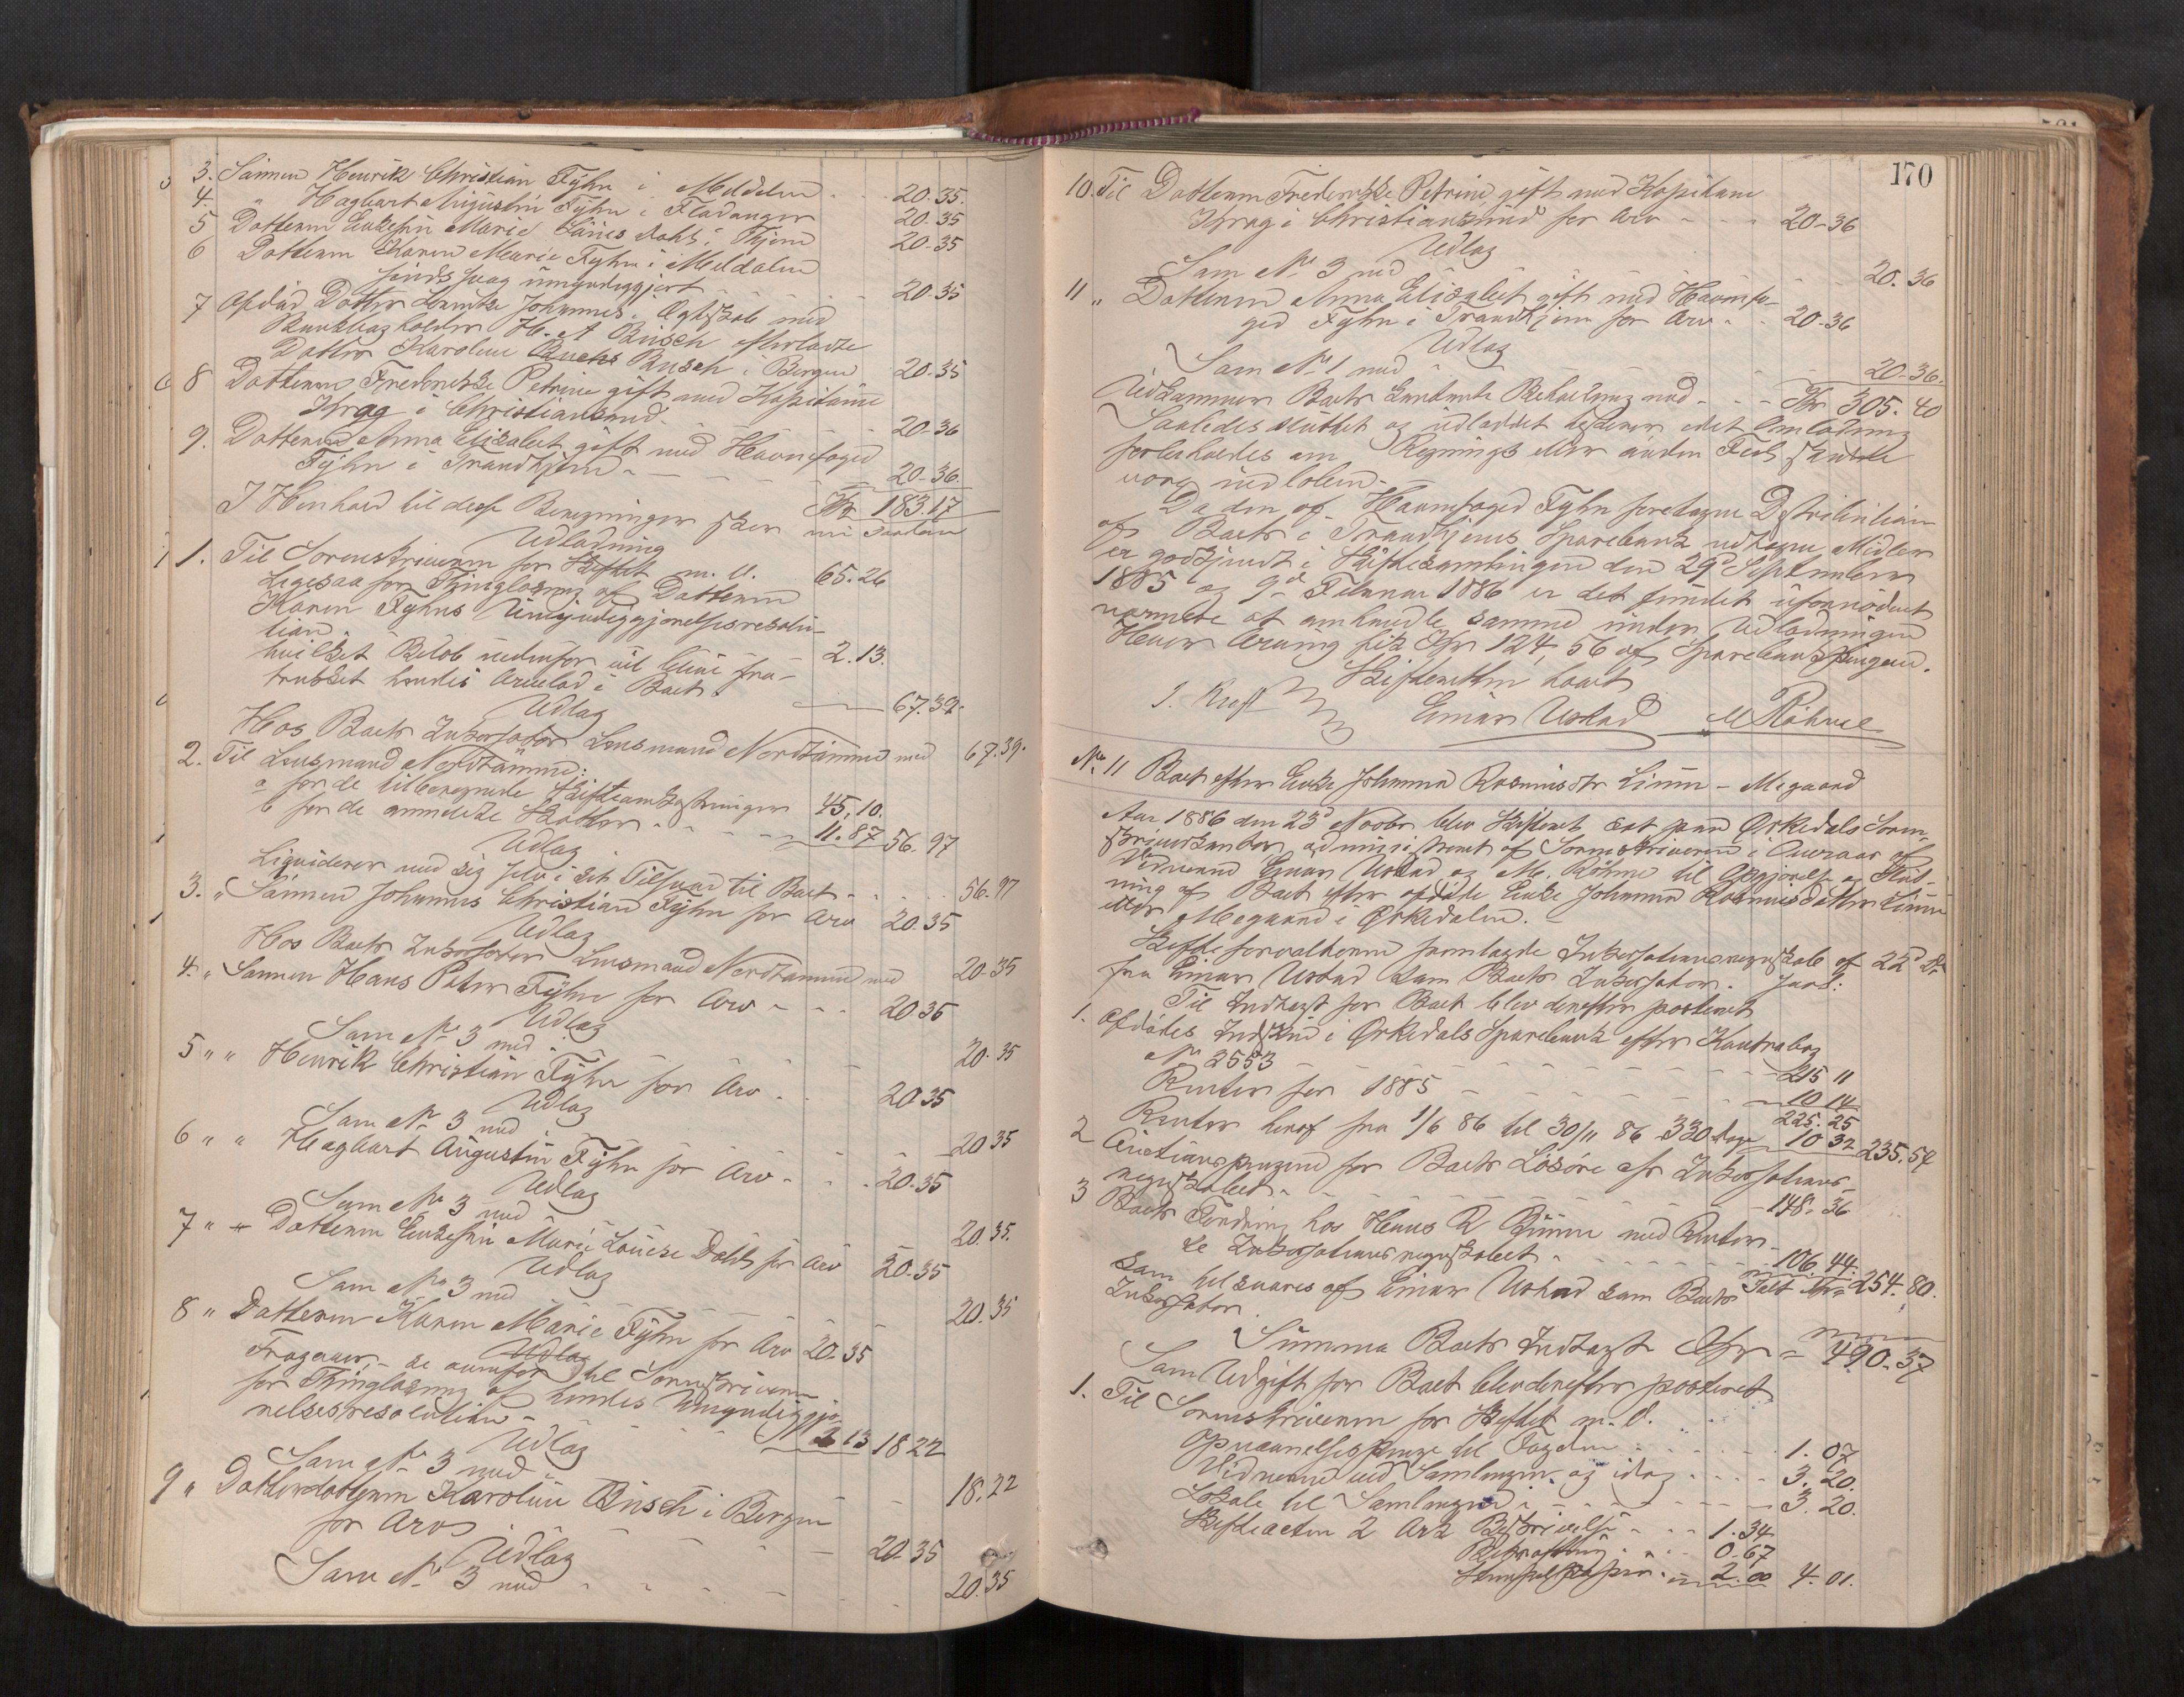 3. Sønnen Henrik Christian Fÿhn i Meldalen 20.35.
4. " Hagbart Augustin Fÿhn i Fladanger 20.35
5 Datteren Enkefru Marie Louise Dahls, Thjem 20.35
6 Datteren Karen Marie Fyhn i Meldalen
sindssvag umyndiggjort 20.35
7 Afdød Datter Johannes i Ægteskab med
H. A Büsch efterladte
Datter Karoline Busch i Bergen 20.35
8 Datteren Frederikke Petrine gift med Kapitain
Krag i Christiansund 20-36
9. Datteren Anna Elisabet gift med Havnefoged
Fÿhn i Trondhjem 20-36.
Kr 183.17
I Henhold til disse Beregninger sker nu saadan
Udlodning
1. Til Sorenskriveren for Skiftet m. v. 65.26
Ligesaa for Thinglæsning af Datteren
Karen Fyhns Umyndiggjørelsesresolu-
tion 2.13.
hvilket Beløb nedenfor vil blive fra-
trukket hendes Arvelod i Boet
67.39.
Udlæg
Hos Boets Inkassator Lensmand Nordtømme med 67.39.
2. Til Lensmand Nordtømme:
a for de tilberegnede Skifteomkostninger 45.10.
b for de anmeldte Skatter 11.87 56.97
Udlæg
Liquiderer med sig selv i sit Tilsvar til Boet 56.97
3. " Sønnen Johannes Christian Fÿhn for Arv 20.35
Udlæg
Hos Boets Inkassator Lensmand Nordtømme med 20.35
4. " Sønnen Hans Peter Fÿhn for Arv 20.35
Udlæg
Som No 3 med 20.35
5 " " Henrik Christian Fÿhn for Arv 20.35
Udlæg
Som No 3 med 20.35
6 " " Hagbart Augustin Fÿhn for Arv 20.35
Udlæg
Som No 3 med 20.35.
7 " " Datteren Enkefru Marie Louise Dahls for Arv 20.35
Udlæg
Som No 3 med 20.35
8 " Datteren Karen Marie Fÿhn for Arv 20.35
Udlæg
Fragaaer, se ovenfor til Sorenskriveren
for Thinglæsning af hendes Umyndiggjø-
relsesresolution 2 13 18 22
Udlæg
Som No 3 med 18.22
9 " Datterdatteren Karoline Büsch i Bergen
for Arv 20.35
Udlæg
Som No 3 med 20.35
170
10. Til Datteren Frederikke Petrine, gift med Kapitain
Krag i Christiansund for Arv 20-36
Udlæg
Som No 3 med 20.36
11 " Datteren Anna Elisabet gift med Havnefo-
ged Fyhn i Trondhjem for Arv 20-36
Udlæg
Som No 1 med 20-36.
Udkommer Boets Beholdning med Kr 305.40
Saaledes sluttet og udloddet
forbeholdes om Regnings eller anden Feil skulde
være indløben.
Da den af Havnefoged Fyhn foretagne Distribution
af Boets i Trondhjems Sparebank Midler
er godkjendt i Skiftesamlingen den 29de September
1885 og 9de Februar 1886 er det fundet ufornødent
nærmere at omhandle samme under Udlodningen
Hver Arving fik Kr 124,56 af Sparebankpengene.
Skifteretten hævet
J. Kraft Einar Ustad M Röhme
No 11 Boet efter Enke Johanna Rasmusdtr Lium - Megaard
Aar 1886 den 23d Novbr. blev Skifteret sat paa Ørkedals Soren-
skriverkontor, administreret af Sorenskriveren i Overvær af
Vidnerne Einar Ustad og M. Röhme til Opgjørelse og Slut-
ning af Boet efter afdøde Enke Johanna Rasmusdatter Lium
eller Megaard i Ørkedalen.
Skifteforvalteren fremlagde Inkassationsregnskab af 22d
fra Einar Ustad som Boets Inkassator.
Til Indtægt for Boet blev derefter posteret
1. Afdødes Indskud i Ørkedals Sparebank efter Kontrabog
No 2553 215 11
Renter for 1885 10 14
225.25
Renter heraf fra 1/6 86 til 30/11 86 330 dage 10 32 235.57
2 Auctionspengene for Boets Løsøre efter Inkassations-
regnskabet 148.36
3 Boets Fordring hos Hans R Bÿnne med Renter
se Inkassationsregnskabet 106.44.
Som tilsvares af Einar Ustad som Boets 254.80.
Inkassator
Summa Boets Indtægt Kr 490.37
Som Udgift for Boet blev derefter posteret
1. Til Sorenskriveren for Skiftet m. v.
Opnævnelsespenge til Fogden 1.07
Vidnerne ved Samlingen og idag 3.20.
Lokale til Samlingen 3.20.
Skifteacten 2 Ark Beskrivelse 1.34
Bekræftning 0.67
Stempelpapir 2.00 4.01.